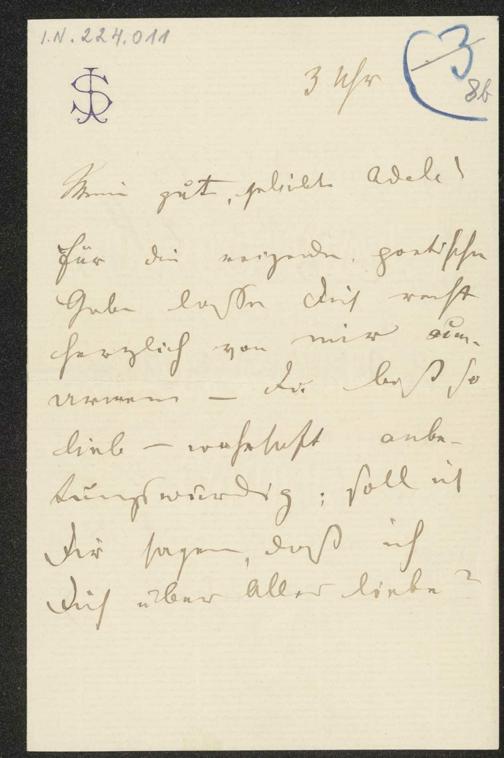 I.N. 224.011
3
8b
JS
3 Uhr
Meine gute, geliebte Adele!
Für die reizende, poetische
Gabe lasse Dich recht
herzlich von mir um-
armen – Du bist so
lieb – wahrhaft anbe-
tungswürdig; soll ich
Dir sagen, daß ich
Dich über Alles liebe?